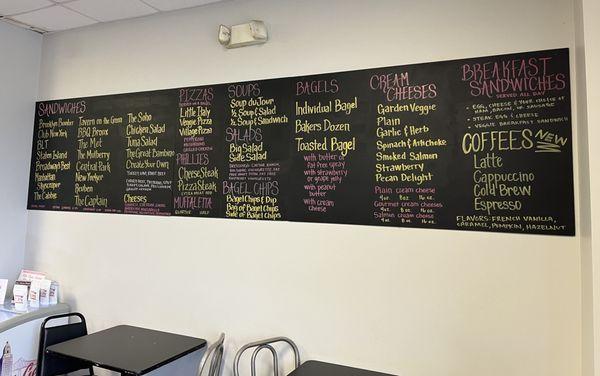 SANDWICHES
Brooklyn Bomber
Club New York
BLT
Staten Island
Broadway's Best
Manhattan
Skyscraper
The Cabbie
Tavern on the Green
BBQ Bronx
The Met
The Mulberry
Central Park
New Yorker
Reuben
The Captain
The Soho
Chicken Salad
Tuna Salad
The Great Bambino
Create Your Own
Cheeses
PIZZAS
Little Italy
Veggie Pizza
Village Pizza
PHILLIES
Cheese Steak
Pizza Steak
MUFFALETTA
QUARTER HALF
SOUPS
Soup du Jour
½ Soup & Salad
½ Soup & Sandwich
SALADS
Big Salad
Side Salad
BAGEL CHIPS
Bagel Chips & Dip
Bag of Bagel Chips
Side of Bagel Chips
BAGELS
Individual Bagel
Bakers Dozen
Toasted Bagel
with butter or
fat free spray
with strawberry
or grape jelly
with peanut
butter
with cream
cheese
CREAM
CHEESES
Garden Veggie
Plain
Garlic & Herb
Spinach & Artichoke
Smoked Salmon
Strawberry
Pecan Delight
Plain cream cheese
4oz. 8oz. 16 oz.
Gourmet cream cheeses
4oz. 8 oz. 16 oz.
Salmon cream cheese
4oz. 8 oz. 16 oz.
BREAKFAST
SANDWICHES
SERVED ALL DAY
* EGG, CHEESE & YOUR CHOICE OF
HAM, BACON, OR SAUSAGE
* STEAK EGG & CHEESE
* VEGGIE BREAKFAST SANDWICH
COFFEES NEW
Latte
Cappuccino
Cold Brew
Espresso
FLAVORS: FRENCH VANILLA,
CARAMEL, PUMPKIN, HAZELNUT